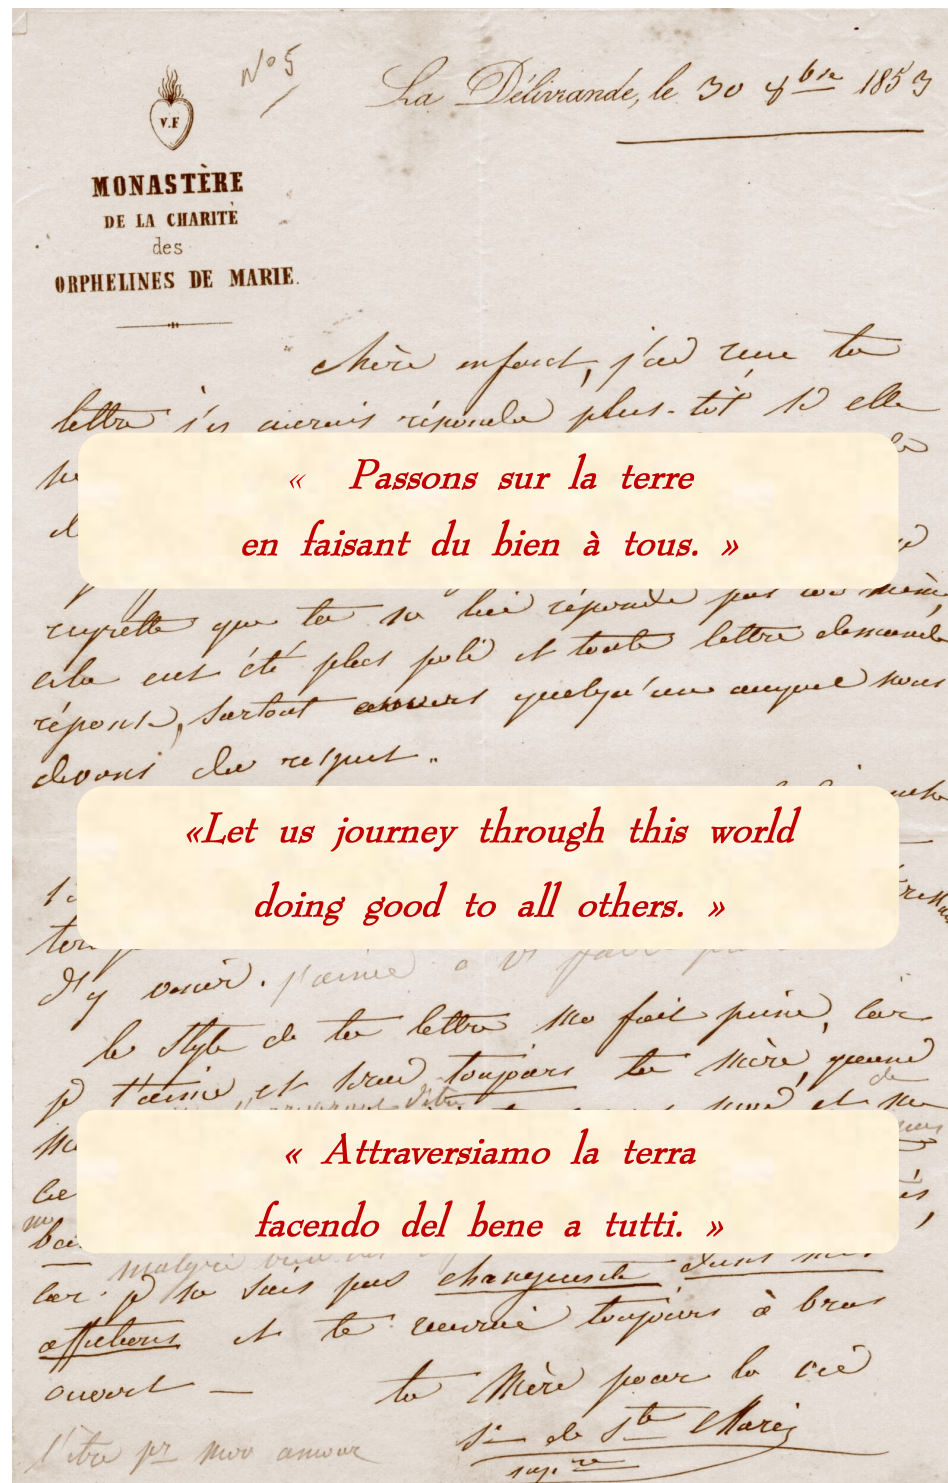 N° 5
La Délivrande, le 30 8bre 1853
V.F
MONASTÈRE
DE LA CHARITÉ
des
ORPHELINES DE MARIE.
chère enfant, j'ai reçu ta
lettre j'y aurais répondu plus-tôt si elle
« Passons sur la terre
en faisant du bien à tous. »
regrette que tu ne lui réponde pas toi même,
cela eut été plus poli et toute lettre demande
réponse, surtout envers quelqu'un auquel nous
devons du respect.
«Let us journey through this world
doing good to all others. »
d'y venir. j'aime
le style de ta lettre me fait peine, car
je t'aime et serai toujours ta mère, quand
« Attraversiamo la terra
facendo del bene a tutti. »
malgré
car je ne suis pas changeante dans mes
affections et te recevrai toujours à bras
ouvert —
ta Mère pour la vie
Sr de Ste Marie
supre
l'être pr mon amour